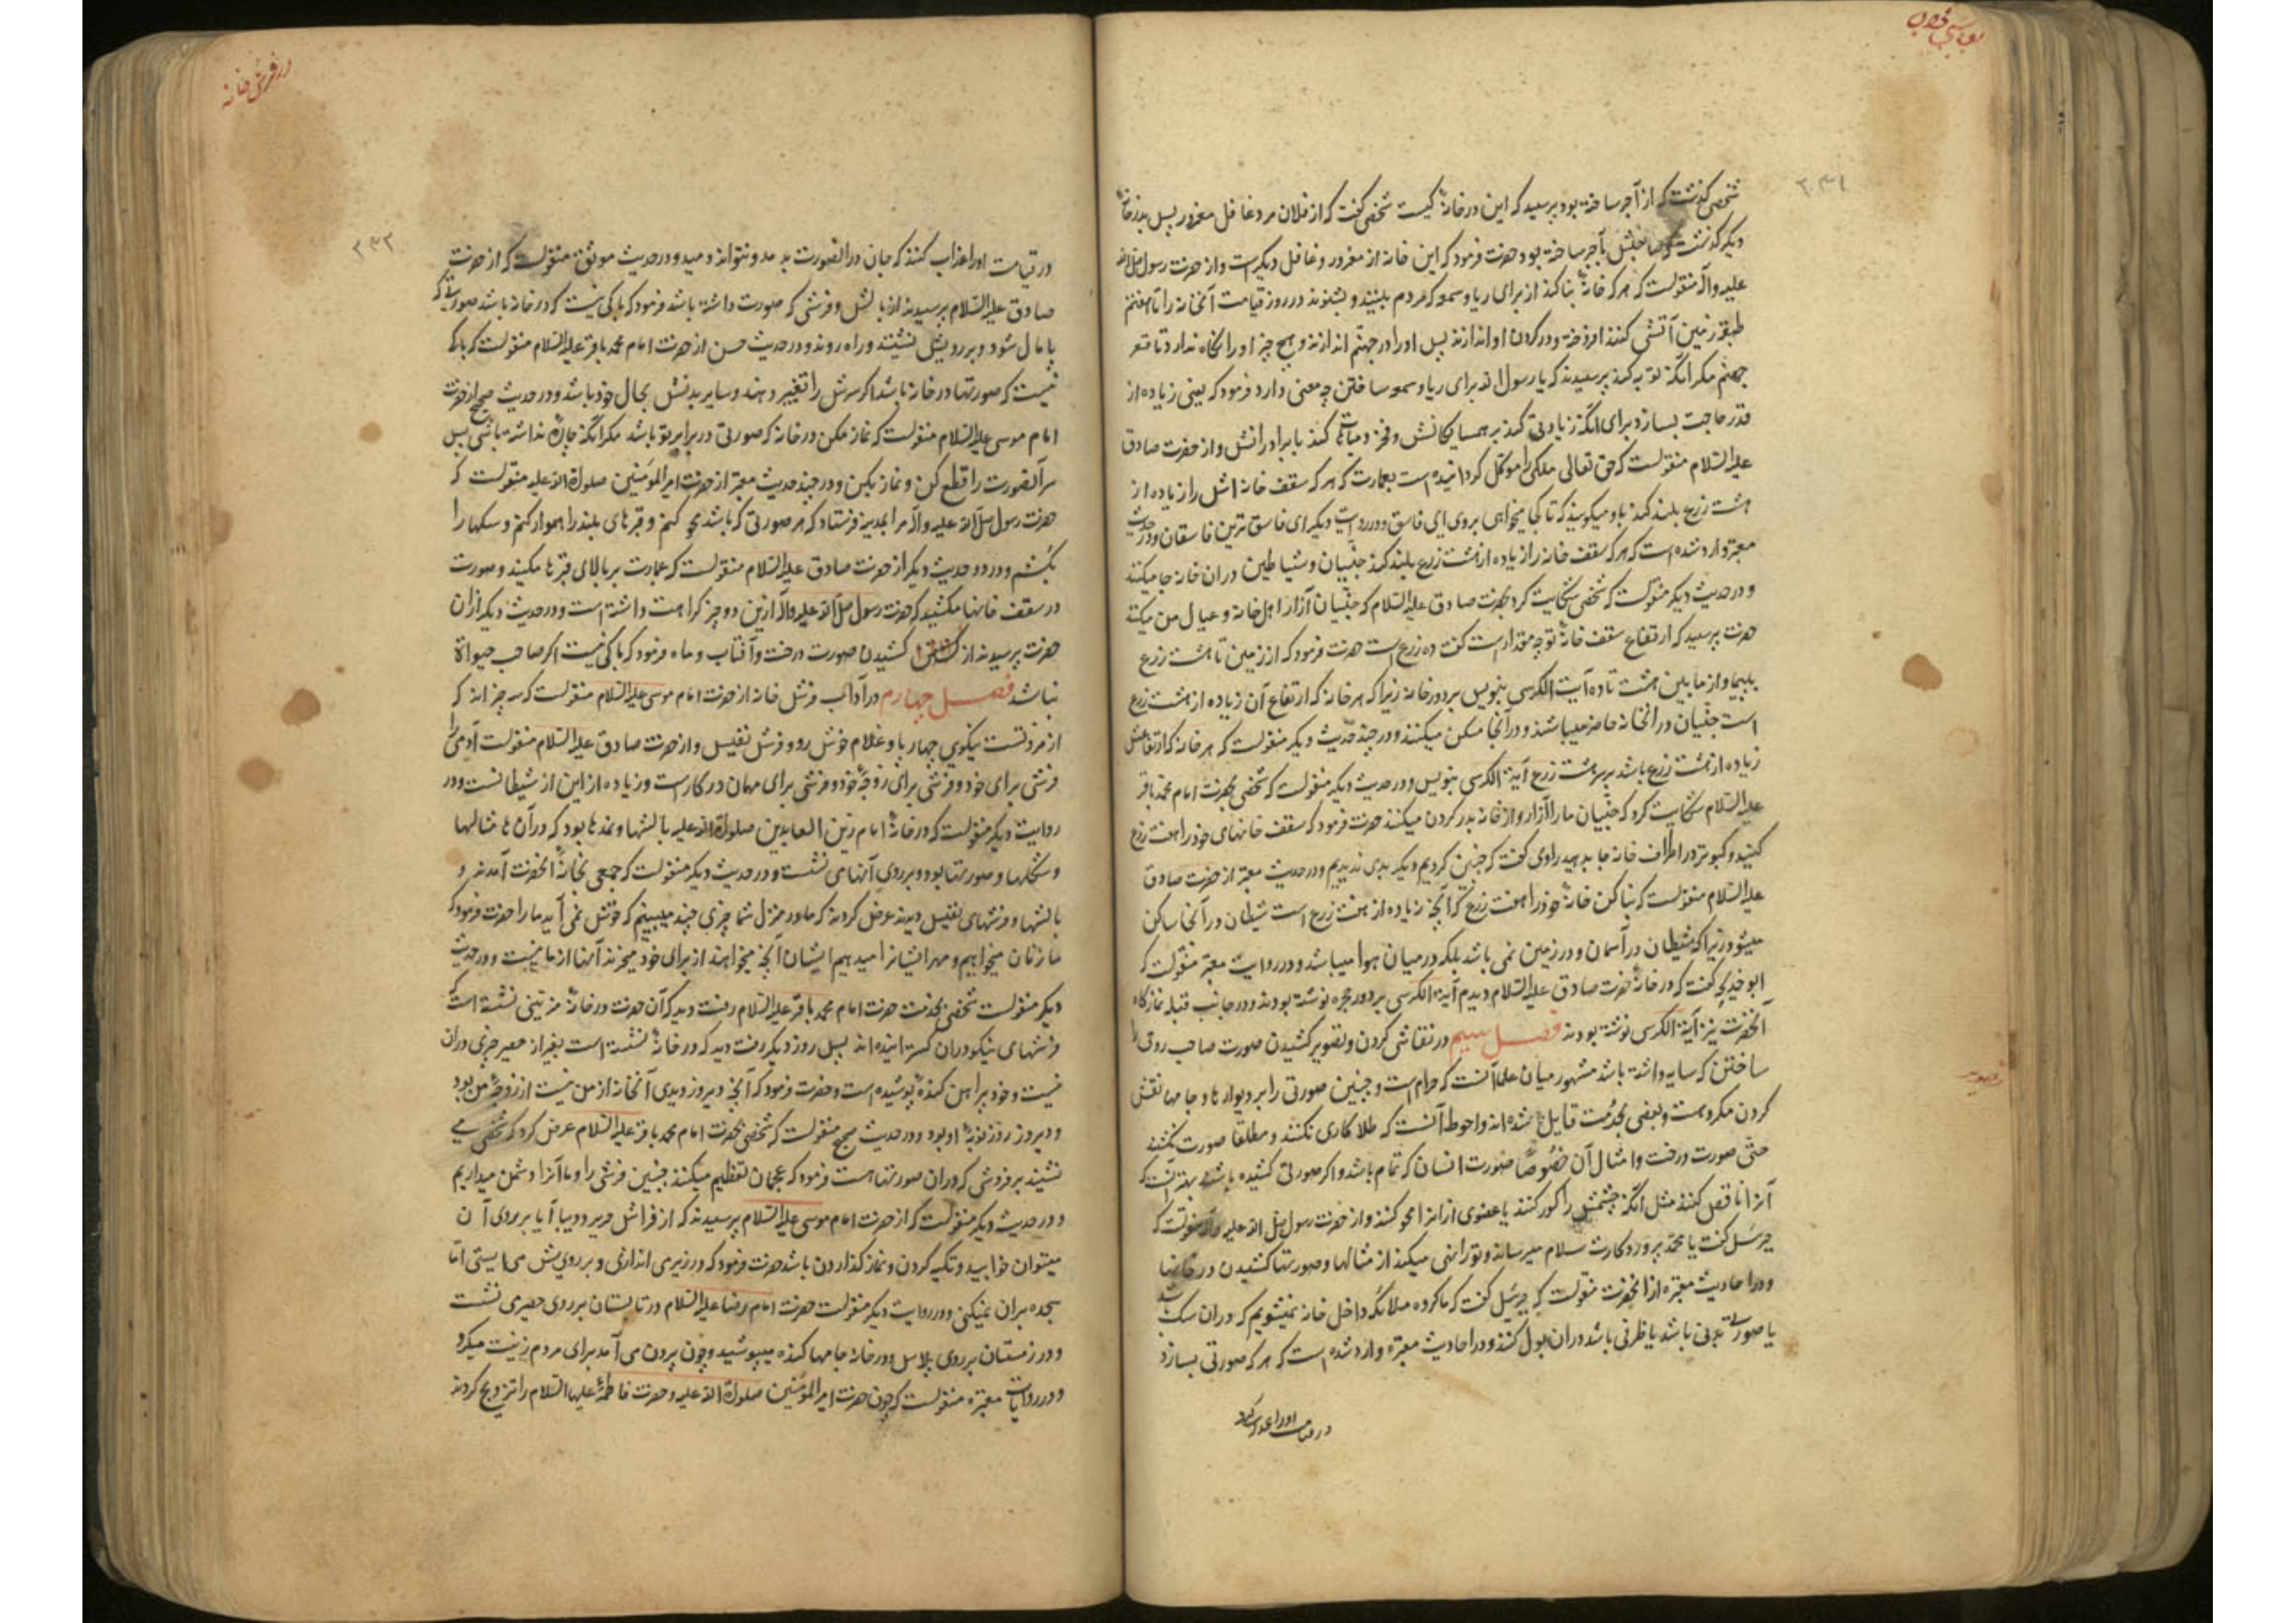 شخصی گذشت که از آجر ساخته بود پرسید که این در خانهٔ کیست شخصی گفت که از فلان مرد غافل مغرور پس بدر خانهٔ
دیگر گذشت که صاحبش بآجر ساخته بود حضرت فرمود که این خانه از مغرور و غافل دیگر است و از حضرت رسول صلی الله
علیه و آله منقولست که هر که خانهٔ بنا کند از برای ریا و سمعه که مردم ببینند و بشنوند در روز قیامت آنخانه را تا هفتم
طبقه زمین آتشی کنند افروخته و در گردن او اندازند پس او را در جهنم اندازند و هیچ چیز او را نگاه ندارد تا قعر
جهنم مگر آنکه توبه کند پرسیدند که یا رسول الله برای ریا و سمعه ساختن چه معنی دارد فرمود که یعنی زیاده از
قدر حاجت بسازد برای آنکه زیادتی کند بر همسایگانش و فخر و مباهات کند با برادرانش و از حضرت صادق
علیه السلام منقولست که حق تعالی ملکی را موکل گردانیده است بعمارت که هر که سقف خانه اش را زیاده از
هشت زرع بلند کند باو میگویند که تا کجا میخواهی بروی ای فاسق و در روایت دیگر ای فاسق ترین فاسقان و در حدیث
معتبر وارد شده است که هر که سقف خانه را زیاده از هشت زرع بلند کند جنیان و شیاطین در ان خانه جا میکنند
و در حدیث دیگر منقولست که شخصی شکایت کرد بحضرت صادق علیه السلام که جنیان آزار اهل خانه و عیال من میکنند
حضرت پرسید که ارتفاع سقف خانهٔ تو چه مقدار است گفت ده زرع است حضرت فرمود که از زمین تا هشت زرع
بپیما و از ما بین هشت تا ده آیت الکرسی بنویس بر دور خانه زیرا که هر خانه که ارتفاع آن زیاده از هشت زرع
است جنیان در انخانه حاضر میباشند و در آنجا مسکن میکنند و در چند حدیث دیگر منقولست که هر خانه که ارتفاعش
زیاده از هشت زرع باشد بر سر هشت زرع آیة الکرسی بنویس و در حدیث دیگر منقولست که شخصی بحضرت امام محمد باقر
علیه السلام شکایت کرد که جنیان ما را آزار و از خانه بدر کردن میکنند حضرت فرمود که سقف خانهای خود را هفت زرع
کنید و کبوتر در اطراف خانه جا بدهید راوی گفت که چنین کردیم دیگر بدی ندیدیم و در حدیث معتبر از حضرت صادق
علیه السلام منقولست که بنا کن خانهٔ خود را هفت زرع که آنچه زیاده از هفت زرع است شیطان در آنجا ساکن
میشود زیرا که شیطان در آسمان و در زمین نمی باشد بلکه در میان هوا میباشد و در روایت معتبر منقولست که
ابو خدیجه گفت که در خانهٔ حضرت صادق علیه السلام دیدم آیة الکرسی بر دور حجره نوشته بودند و در جانب قبله نماز گاه
آنحضرت نیز آیة الکرسی نوشته بودند فصل سیم در نقاشی کردن و تصویر کشیدن صورت صاحب روحی را
ساختن که سایه داشته باشد مشهور میان علما آنست که حرام است و چنین صورتی را بر دیوارها و جامها نقش
کردن مکروهست و بعضی بحرمت قایل شده اند و احوط آنست که طلا کاری نکنند و مطلقا صورت نکشند
حتی صورت درخت و امثال آن خصوصا صورت انسان که تمام باشد و اگر صورتی کشیده باشند بهتر آنست که
آنرا ناقص کنند مثل آنکه چشمش را کور کنند یا عضوی از انرا محو کنند و از حضرت رسول صلی الله علیه و آله منقولست که
جبرئیل گفت یا محمد پروردگارت سلام میرساند و تو را نهی میکند از مثالها و صورتها کشیدن در خانها
و در احادیث معتبره از آنحضرت منقولست که جبرئیل گفت که ما گروه ملائکه داخل خانه نمیشویم که در ان سگ باشد
یا صورت بدنی باشد یا ظرفی باشد که در ان بول کنند و در احادیث معتبره وارد شده است که هر که صورتی بسازد
در قیامت او را عذاب کنند
در فرش خانه
در قیامت او را عذاب کنند که جان در انصورت بدمد و نتواند دمید و در حدیث موثق منقولست که از حضرت
صادق علیه السلام پرسیدند از بالش و فرشی که صورت داشته باشد فرمود که باکی نیست که در خانه باشد صورتی که
پامال شود و بر رویش نشینند و راه روند و در حدیث حسن از حضرت امام محمد باقر علیه السلام منقولست که باکی
نیست که صورتها در خانه باشد اگر سرش را تغییر دهند و سایر بدنش بحال خود باشد و در حدیث صحیح از حضرت
امام موسی علیه السلام منقولست که نماز مکن در خانه که صورتی در برابر تو باشد مگر آنکه چارهٔ نداشته باشی پس
سر آنصورت را قطع کن و نماز بکن و در چند حدیث معتبر از حضرت امیر المؤمنین صلوة الله علیه منقولست که
حضرت رسول صلی الله علیه و آله مرا بمدینه فرستاد که هر صورتی که باشد محو کنم و قبرهای بلند را هموار کنم و سگها را
بکشم و در دو حدیث دیگر از حضرت صادق علیه السلام منقولست که عمارت بر بالای قبرها مکنید و صورت
در سقف خانها مکشید که حضرت رسول صلی الله علیه و آله ازین دو چیز کراهت داشته است و در حدیث دیگر از ان
حضرت پرسیدند از کشیدن صورت درخت و آفتاب و ماه فرمود که باکی نیست اگر صاحب حیوة
نباشد فصل چهارم در آداب فرش خانه از حضرت امام موسی علیه السلام منقولست که سه چیز اند که
از مزدتست نیکوی چهار پا و غلام خوش رو و فرش نفیس و از حضرت صادق علیه السلام منقولست آدمی را
فرشی برای خود و فرشی برای زوجهٔ خود و فرشی برای مهمان در کار است و زیاده از این از شیطانست و در
روایت دیگر منقولست که در خانهٔ امام زین العابدین صلوة الله علیه بالشها و نمدها بود که در آن ها مثالها
و شکلها و صورتها بود و بر روی آنها می نشست و در حدیث دیگر منقولست که جمعی بخانهٔ آنحضرت آمدند و
بالشها و فرشهای نفیس دیدند عرض کردند که ما در منزل شما چیزی چند میبینیم که خوش نمی آید ما را حضرت فرمود که
ما زنان میخواهیم و مهر ایشانرا میدهیم ایشان آنچه میخواهند از برای خود میخرند آنها از ما نیست و در حدیث
دیگر منقولست شخصی بخدمت حضرت امام محمد باقر علیه السلام رفت دید که آن حضرت در خانهٔ مزینی نشسته است که
فرشهای نیکو در ان گسترانیده اند پس روز دیگر رفت دید که در خانهٔ نشسته است بغیر از حصیر چیزی در ان
نیست و خود پیراهن کندهٔ پوشیده است و حضرت فرمود که آنچه دیروز دیدی آنخانه از من نیست از زوجهٔ من بود
و دیروز روز نوبهٔ او بود و در حدیث صحیح منقولست که شخصی بحضرت امام محمد باقر علیه السلام عرض کرد که شخصی می
نشیند بر فرشی که در ان صورتها هست فرمود که عجمان تعظیم میکنند چنین فرشی را و ما آنرا دشمن میداریم
و در حدیث دیگر منقولست که از حضرت امام موسی علیه السلام پرسیدند که از فراش حریر و دیبا آیا بر روی آن
میتوان خوابید و تکیه کردن و نماز گذاردن باشد حضرت فرمود که در زیر می اندازی و بر رویش می ایستی اما
سجده بران نمیکنی و در روایت دیگر منقولست حضرت امام رضا علیه السلام در تابستان بر روی حصیری نشست
و در زمستان بر روی پلاس و در خانه جامها کنده میپوشید و چون بیرون می آمد برای مردم زینت میکرد
و در روایات معتبره منقولست که چون حضرت امیر المؤمنین صلوة الله علیه و حضرت فاطمهٔ علیها السلام را تزویج کردند